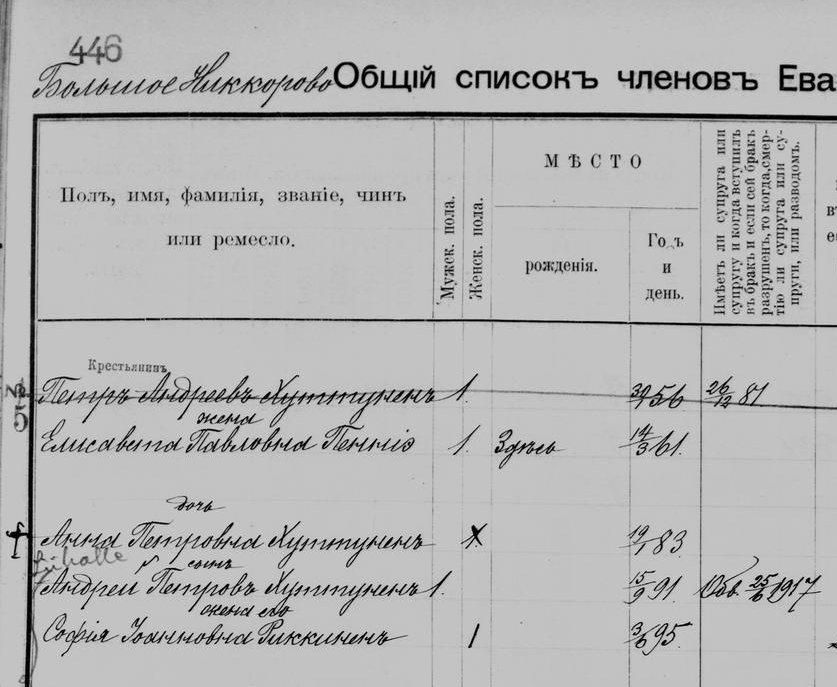 446
Большое Никкорово Общій списокъ членовъ Ева
Полъ, имя, фамилія, званіе, чинъ
или ремесло.
Мужск. пола.
Женск. пола.
МѢСТО
рожденія.
Годъ
и
день.
Имѣетъ ли супруга или
супругу и когда вступилъ
въ бракъ и если сей бракъ
разрушенъ, то когда, смер-
тію ли супруга или су-
пруги, или разводомъ.
Крестьянинъ
Петръ Андреевъ Хуттуненъ 1. 56 26/12 81
жена
Елисавета Павловна 1. Здѣсь 14/3 61.
дочь
Анна Петровна Хуттуненъ 19/1 83
сынъ
Андрей Петровъ Хуттуненъ 1. 15/9 91. Обв. 25/6 1917
жена его
Софія Іоанновна Риккиненъ 1 3/6 95.